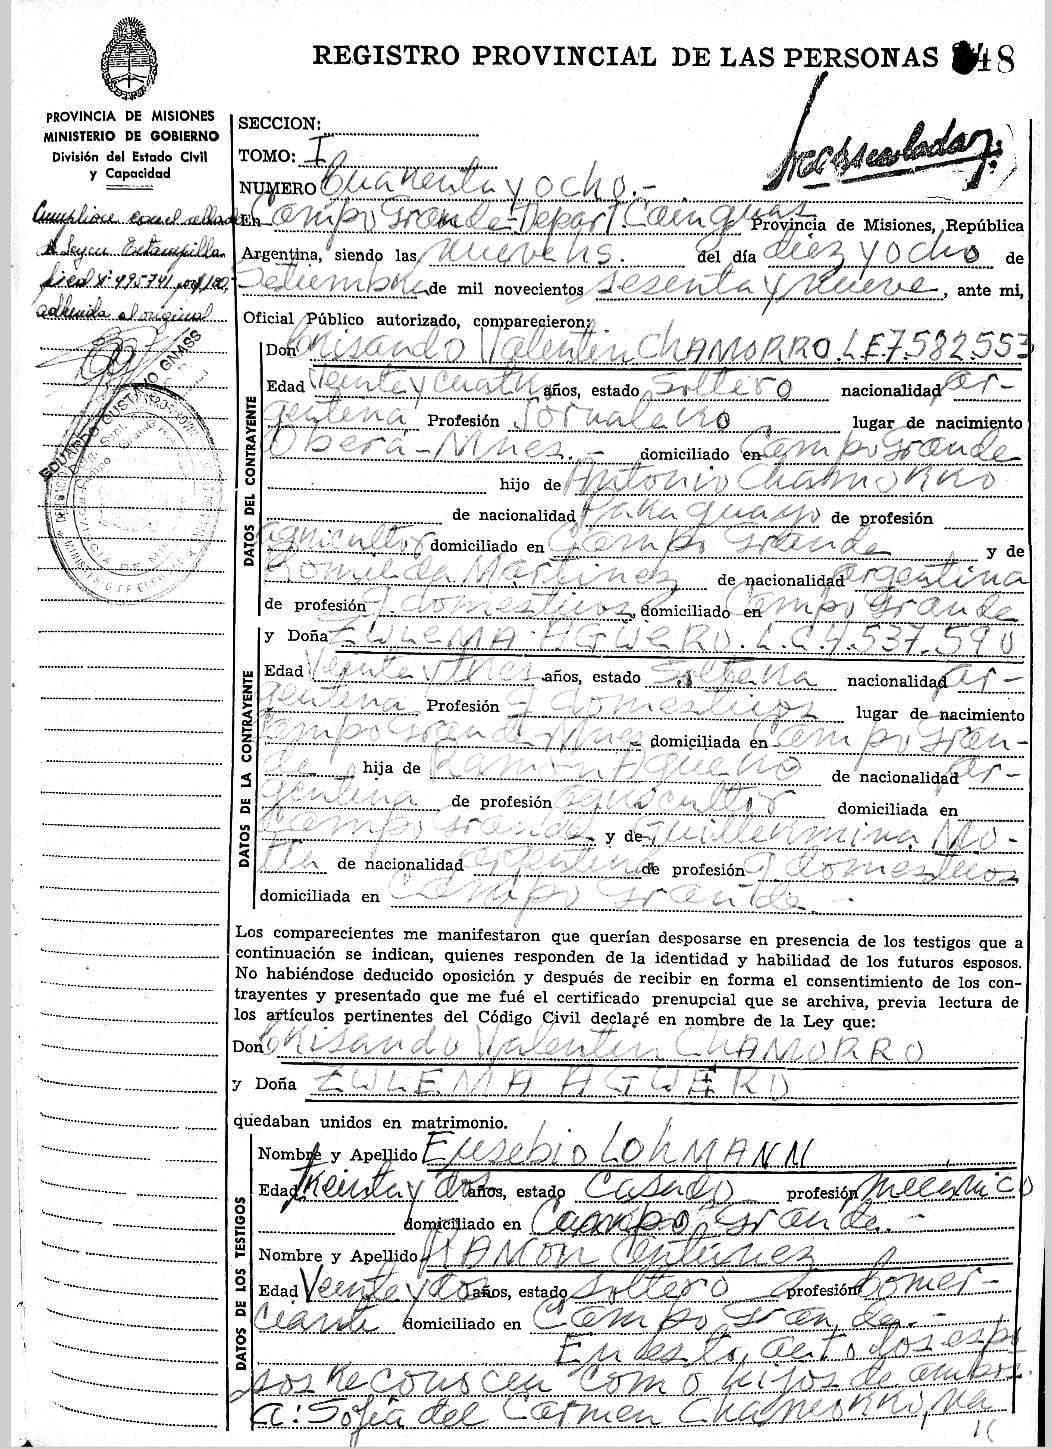 REGISTRO PROVINCIAL DE LAS PERSONAS 48
PROVINCIA DE MISIONES
MINISTERIO DE GOBIERNO
División del Estado Civil
y Capacidad
SECCION:
TOMO: I
NUMERO Cuarenta y ocho.-
En Campo Grande-Depart. Cainguas Provincia de Misiones, República
Argentina, siendo las nueve hs. del día diez y ocho de
Setiembre de mil novecientos sesenta y nueve, ante mi,
Oficial Público autorizado, comparecieron:
adherida al original
EDUARDO GUSTAVO GNASS
DATOS DEL CONTRAYENTE
Don Crisando Valentin CHAMORRO. L.E 7.582553
Edad Veinte y cuatro años, estado Soltero nacionalidad ar-
gentina Profesión Jornalero lugar de nacimiento
Oberá-Mnes.- domiciliado en Campo Grande
hijo de Antonio Chamorro
de nacionalidad Paraguayo de profesión
agricultor domiciliado en Campo Grande y de
Romilda Martinez de nacionalidad argentina
de profesión q. domesticos, domiciliado en Campo Grande
DATOS DE LA CONTRAYENTE
y Doña ZULEMA AGUERO. L.C.4.537.590
Edad Veinte y tres años, estado Soltera nacionalidad ar-
gentina Profesión q domesticos lugar de nacimiento
Campo Grande Mnes domiciliada en Campo Gran-
de hija de Ramon Aguero de nacionalidad ar-
gentina de profesión agricultor domiciliada en
Campo Grande y de Guillermina Mo-
tta de nacionalidad argentina de profesión q domesticos
domiciliada en Campo Grande.-
Los comparecientes me manifestaron que querían desposarse en presencia de los testigos que a
continuación se indican, quienes responden de la identidad y habilidad de los futuros esposos.
No habiéndose deducido oposición y después de recibir en forma el consentimiento de los con-
trayentes y presentado que me fué el certificado prenupcial que se archiva, previa lectura de
los artículos pertinentes del Código Civil declaré en nombre de la Ley que:
Don Crisando Valentin CHAMORRO
y Doña ZULEMA AGUERO
quedaban unidos en matrimonio.
DATOS DE LOS TESTIGOS
Nombre y Apellido Eusebio LOHMANN
Edad Treinta y dos años, estado Casado profesión mecanico
domiciliado en Campo Grande.-
Nombre y Apellido RAMON
Edad Veinte y dos años, estado soltero profesión Comer-
ciante domiciliado en Campo Grande.-
En este acto los espo
sos reconocen como hijos de ambos
a: Sofia del Carmen Chamorro, na